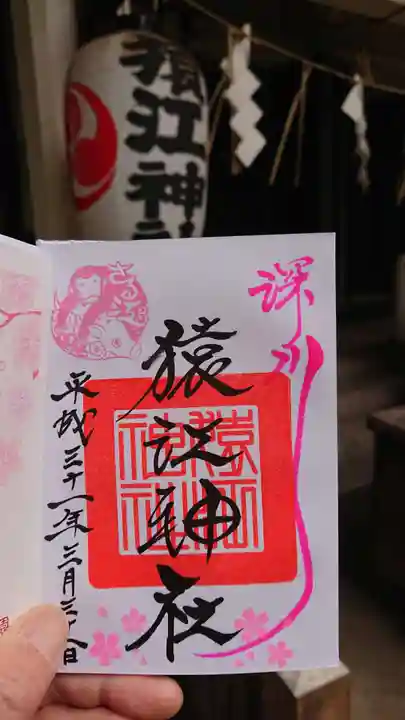 猿江神社
深川
さるえ
猿江神社
猿江神社
平成三十一年三月二十八日